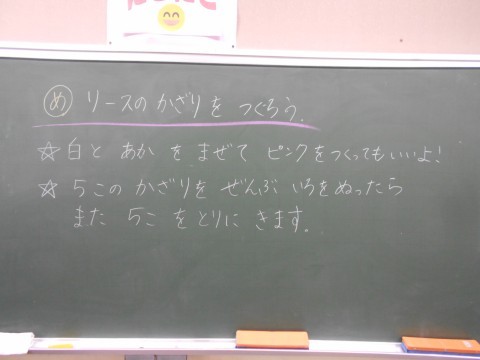 め リースの かざりを つくろう。
☆白と あかを まぜて ピンクをつくってもいいよ!
☆5この かざりを ぜんぶ いろをぬったら
また 5こ をとりに きます。